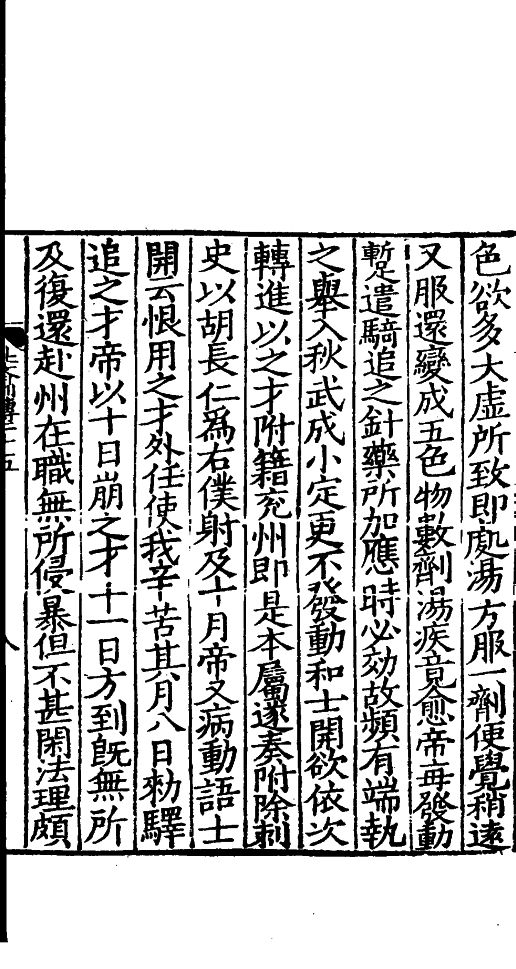 色欲多大虛所致即處湯方服一劑便覺稍遠
又服還變成五色物數劑湯疾竟愈帝每發動
蹔遣騎追之針藥所加應時必効故頻有端執
之舉入秋武成小定更不發動和士開欲依次
轉進以之才附籍兖州即是本屬遂奏附除刺
史以胡長仁爲右僕射及十月帝又病動語士
開云恨用之才外任使我辛苦其月八日勑驛
追之才帝以十日崩之才十一日方到既無所
及復還赴州在職無所侵暴但不甚閑法理頗